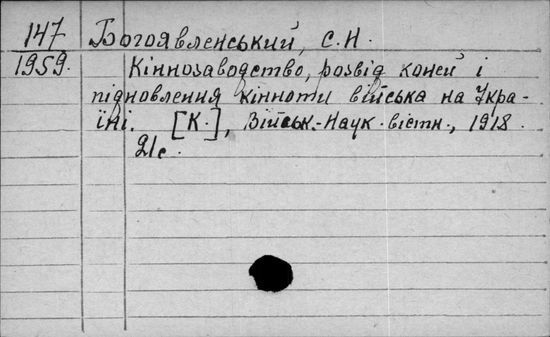 147 Богоявленський, С.Н.
1959. Кіннозаводство, розвід коней і
підновлення кінноти війська на Укра-
їні. [К.], Військ.-Наук. вістн., 1918.
21с.